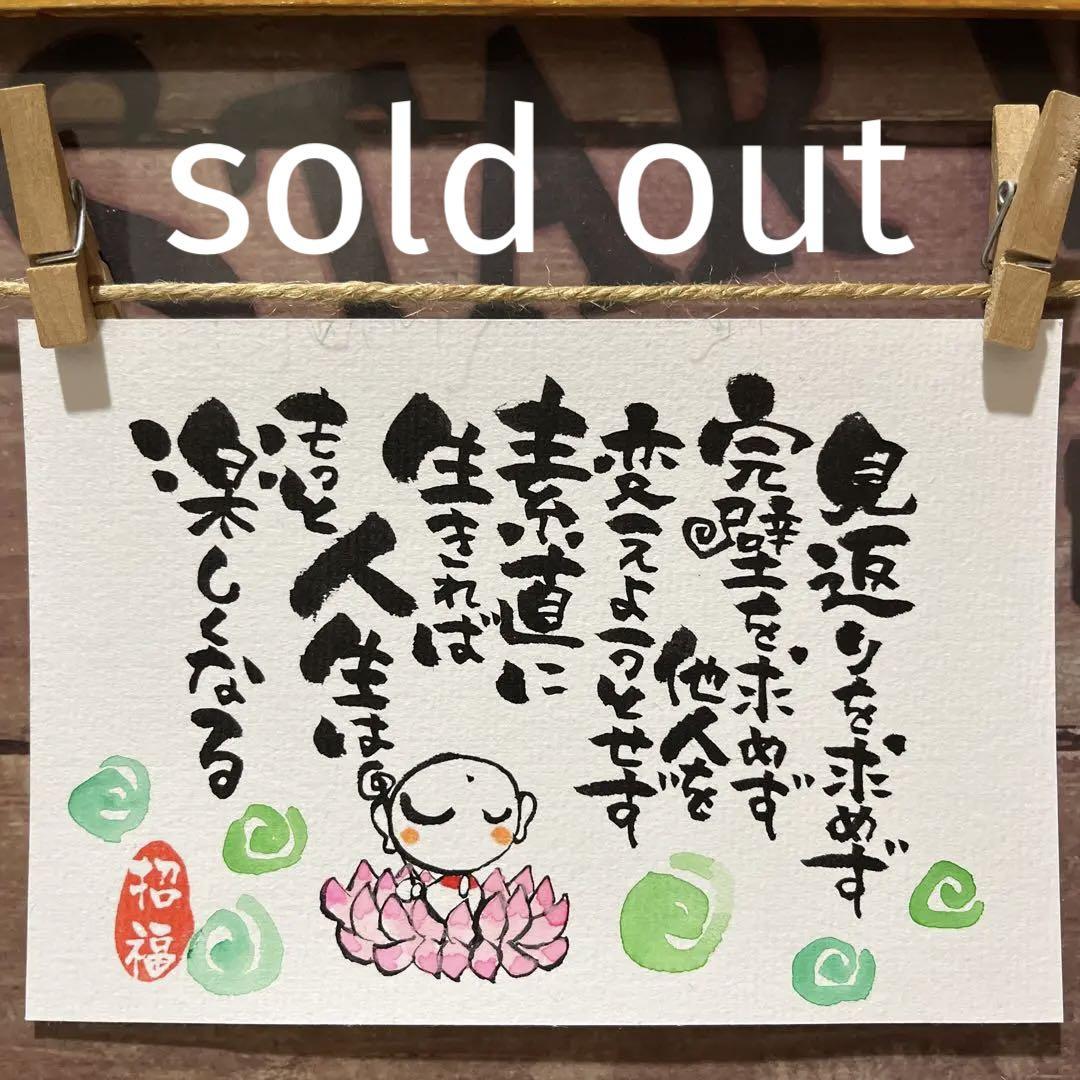 sold out
見返りを求めず
完璧を求めず
他人を
変えようとせず
素直に
生きれば
もっと
人生は
楽しくなる
招福